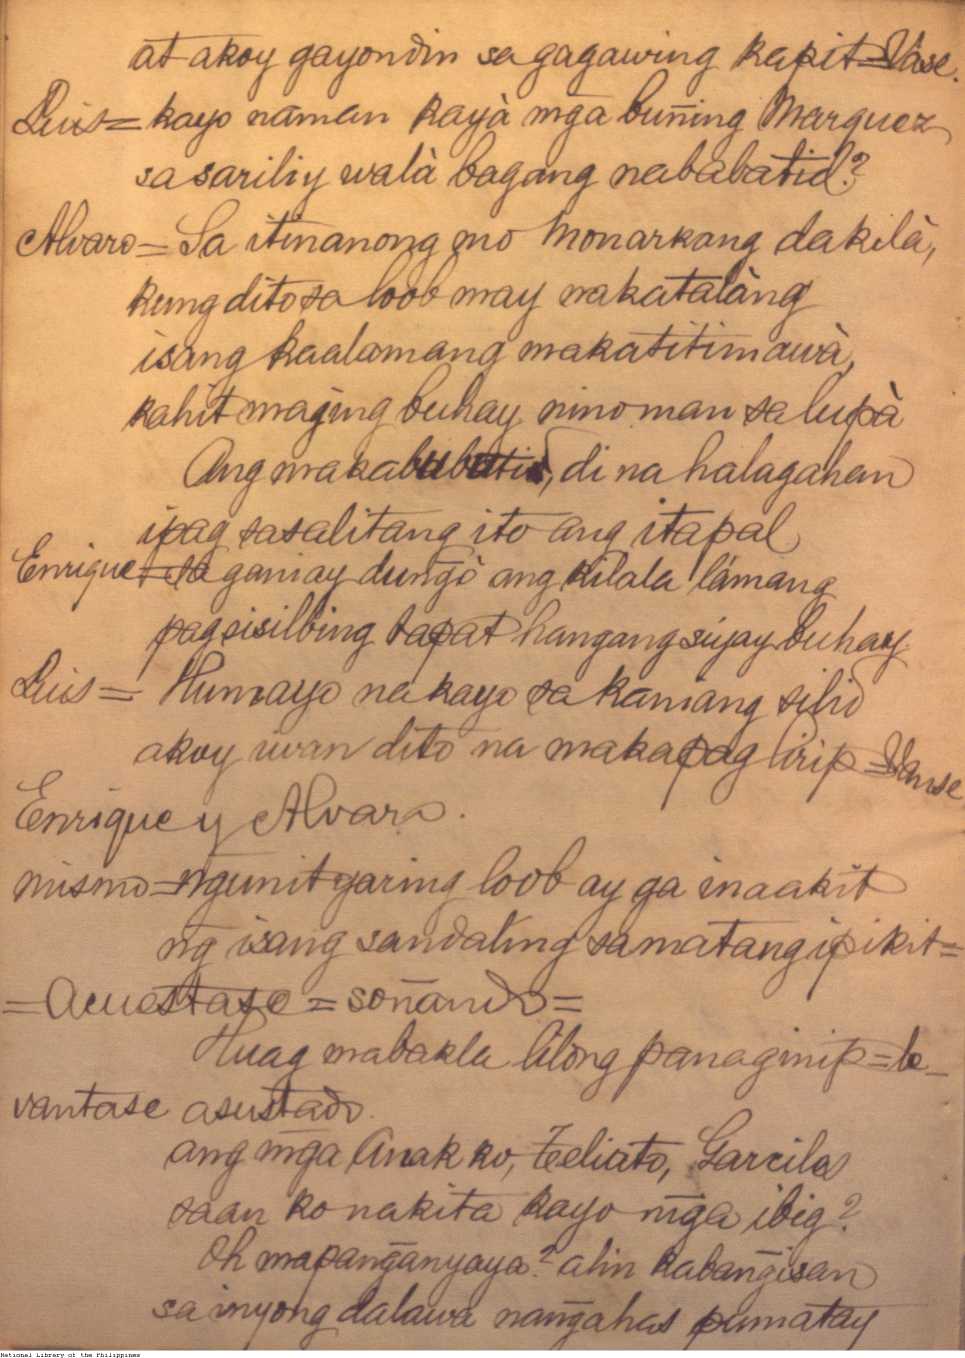 at akoy gayondin sa gagawing kapit = Vase.
Luis = kayo naman kayà mḡa buning Marquez
sa sariliy walà bagang nababatid?
Alvaro = Sa itinanong mo Monarkang dakilà,
kung dito sa loob may nakatalàng
isang kaalamang makatitimawà,
kahit maging buhay ninoman sa lupà
Ang makabubuti, di na halagahan
ipag sasalitang ito ang itapal
Enrique = sa ganiay dungò ang kilala lámang
pagsisilbing tapat hangang súpay buhay
Luis = Humayo na kayo sa kaniang silid
akoy iwan dito na makapag lirip = Vanse
Enrique y Alvaro.
mismo = ngunit yaring loob ay ga inaakit
ng̃ isang sandaling sa matang ipikit =
= Acuestase = soñando =
Huag mabakla lilong panaginip = le-
vantase asustado.
ang mḡa Anak ko, Feliato, Garcilas
saan ko nakita kayo mḡa ibig?
Oh mapang̃anyaya? alin kabang̃isan
sa inyong dalawa nang̃ahas pumatay
National Library of the Philippines